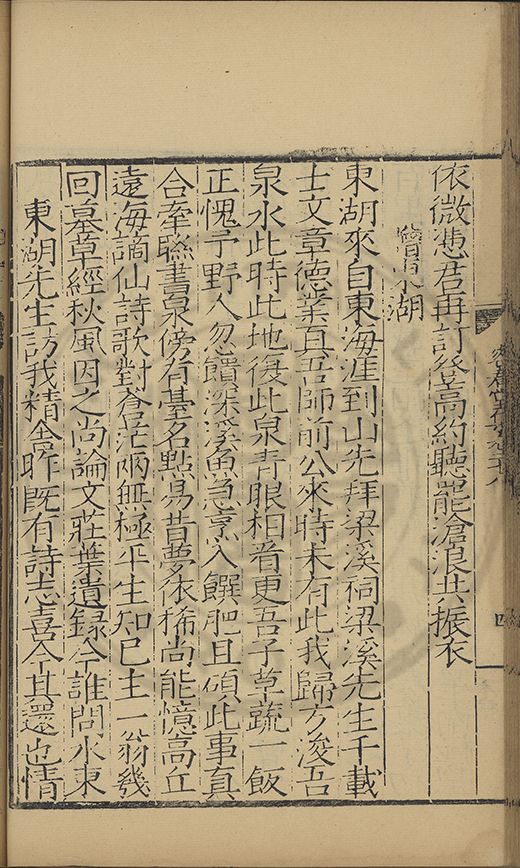 依微憑君再訂登高約聽罷滄浪共振衣
贈東湖
東湖來自東海涯到山先拜梁溪祠梁溪先生千載
士文章德業真吾師前公來時未有此我歸方浚吾
泉水此時此地復此泉青眼相看更吾子草蔬一飯
正愧予野人忽饋深溪魚急烹入饌肥且碩此事真
合牽聯書泉傍有臺名點易昔夢依稀尚能憶高丘
遠海謫仙詩歌對蒼茫兩無極平生知己主一翁幾
回墓草經秋風因之尚論文莊葉遺錄今誰問水東
東湖先生訪我精舍昨既有詩志喜今其還也情
四